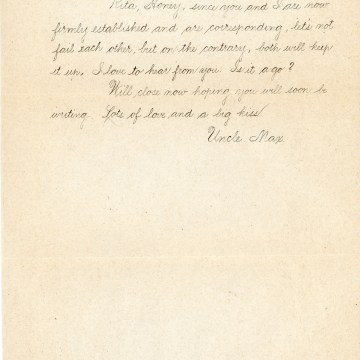 Rita, Honey, since you and I are now
firmly established and are corresponding, let's not
fail each other, but on the contrary, both will keep
it up. I love to hear from you. Is it a go?
Will close now hoping you will soon be
writing. Lots of love and a big kiss.
Uncle Max